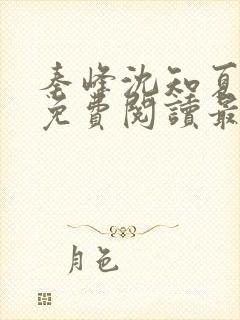 秦峰沈知夏
免費閱讀最
月色